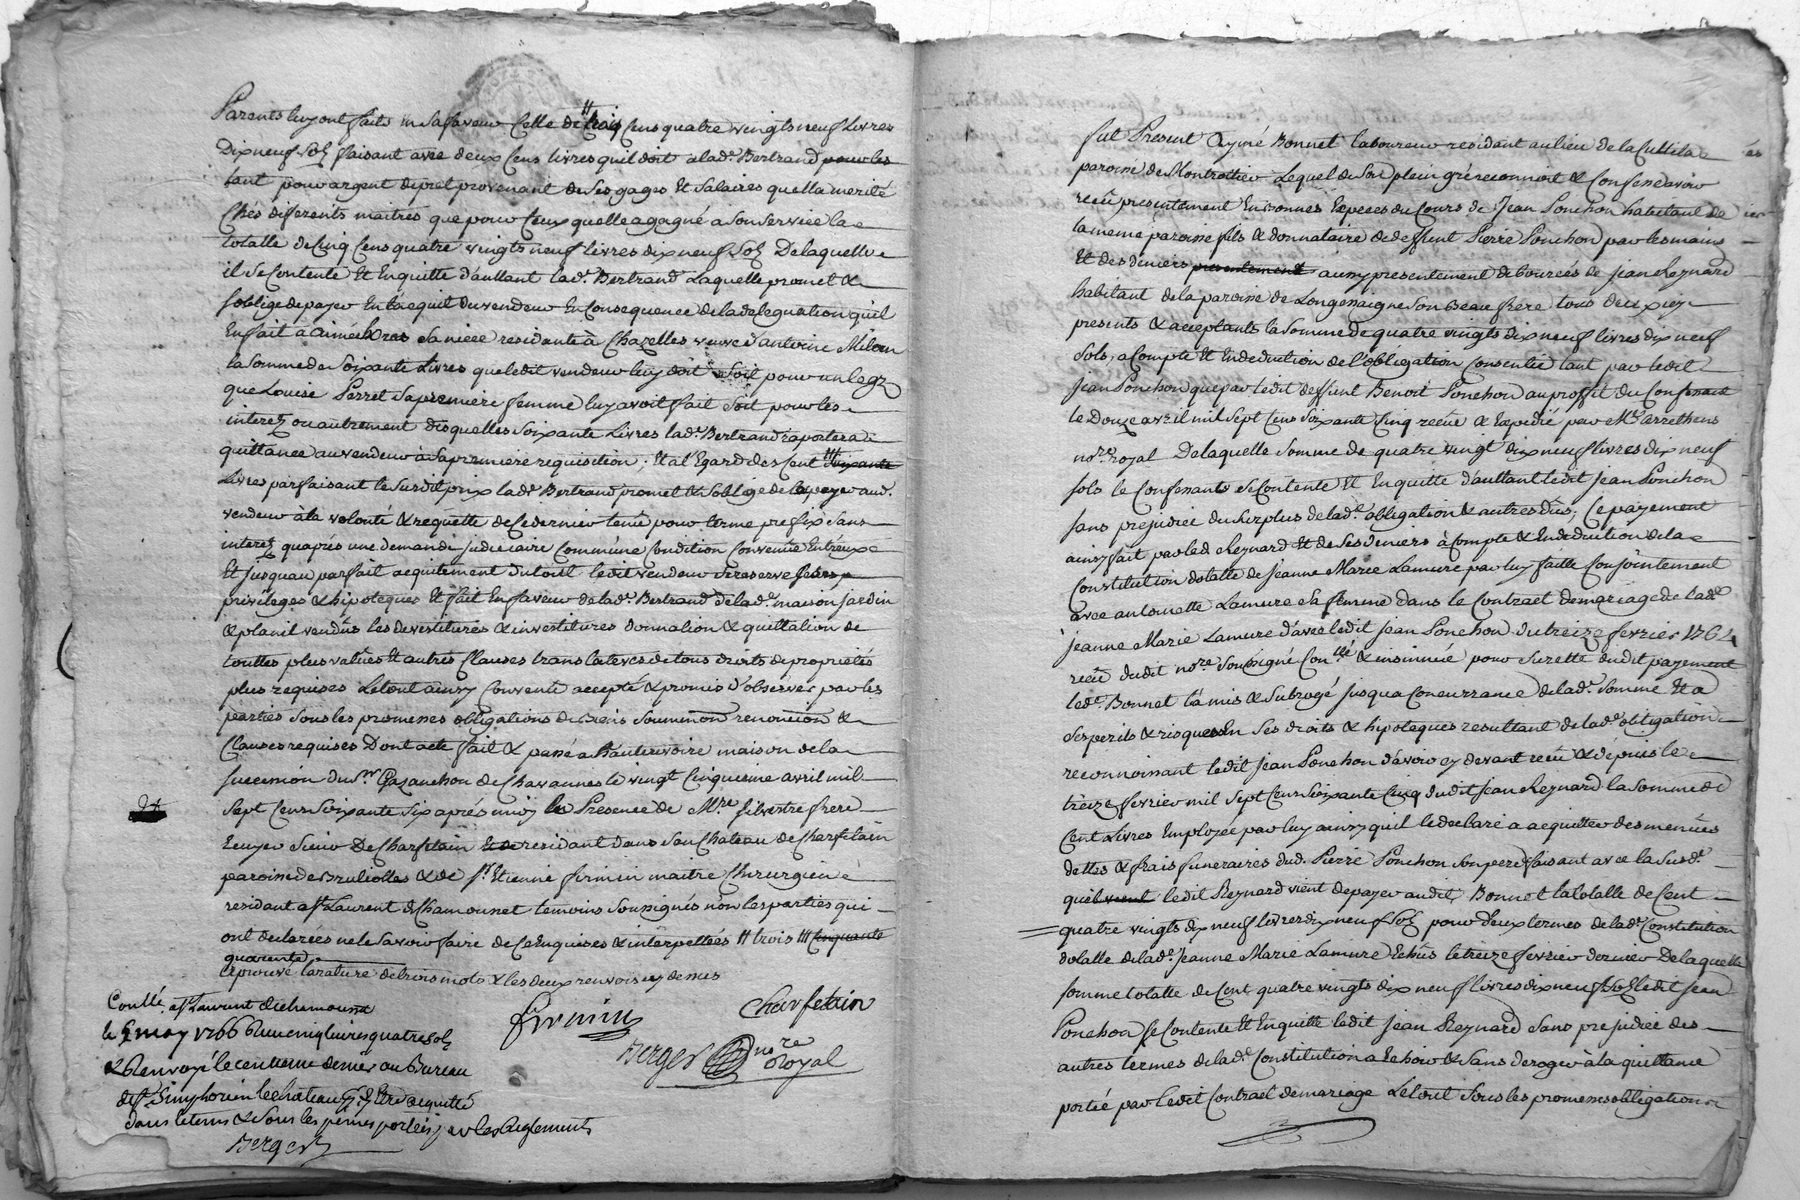 Parents luy ont faits en sa faveur Celle de trois Cens quatre vingts neuf Livres
Dix neuf Sols faisant avec deux Cens livres qu'il doit a lad.e Bertrand pour les
tant pour argent de pret provenant de Ses gages Et Salaires quella merité
Chés differents maitres que pour Ceux quelle a gagné a Son Service la
totalle de Cinq Cens quatre vingts neuf livres dix neuf Sols De laquelle
il Se Contente Et Enquitte d'auttant lad.e Bertrand Laquelle promet &
soblige de payer En l'acquit du vendeur En Consequence de la delegnation qu'il
En fait à aimée Sa niece residante à Chazelles veuve d'antoine Milan
la Somme de Soixante Livres que ledit vendeur luy doit Soit pour un legz
que Louise Perret Sa premiere femme luy avoit fait Soit pour les
interez ou autrement desquelles Soixante Livres lad.e Bertrand raportera
quittance au vendeur a Sa premiere requisition ; Et a l'Egard des Cent Soixante
Livres parfaisant le Susdit prix lad.e Bertrand promet & Soblige de la payer aud.
vendeur à la volonté & requette de Ce dernier tenu pour terme prefix Sans
interez quaprés une demande judiciaire Commune Condition Convenüe Entreux
Et jusquau parfait acquitement du tout ledit vendeur Se reserve
privileges & hipoteques Et fait En faveur de lad.e Bertrand de lad.e maison jardin
& planil vendus les devestitures & investitures donnation & quittation de
touttes plus valües Et autres Clauses translatives de tous droits de proprietés
plus requises Le tout ainsy Convenu accepté & promis d'observer par les
parties Sous les promesses obligations de Biens Soummon renonciôn &
Clauses requises Dont acte fait & passé a hauterivoire maison de la
succession du Sr Gazanchon de Chavannes le vingt Cinquieme avril mil
Sept Cens Soixante Six aprés midy En Presence de M.re Silvestre frere
Ecuyer Sieur De Charfetain residant dans Son Chateau de Charfetain
paroisse de Brulliolles & de Sr Etienne firmin maitre Chirurgien
residant a St Laurent de Chamousset temoins Soussignés non les parties qui
ont declarées ne le Savoir faire de Ce Enquises & interpellées # trois ### Cinquante
quarente
Approuvé la rature de trois mots & les deux renvois cy dessus
firmin Charfetain
Berger no.re Royal
Con.llé a St Laurent de Chamousset
le 5 may 1766 Reçu cinq livres quatre Sols
& Renvoyé le centieme denier au Bureau
de St Simphorien le chateau Etre acquitté
dans le tems & Sous les peines portées par les Reglements
Berger
fut Present Aymé Bonnet laboureur residant au lieu de la Cullila
paroisse de Montrottier Lequel de Son plein gré reconnoit & Confesse avoir
recû presentement En Bonnes Especes du Cours de Jean Ponchon habitant de
la meme paroisse fils & donnataire de deffunt Pierre Ponchon par les mains
Et des deniers presentement aussy presentement debourcés de Jean Reynard
habitant de la paroisse de Longessaigne Son Beau frere tous deux icy
presents & acceptants la Somme de quatre vingts dix neuf livres dix neuf
Sols, a Compte Et En deduction de l'obligation Consentie tant par ledit
Jean Ponchon que par ledit deffunt Benoit Ponchon au proffit du Confessant
le Douze avril mil Sept Cens Soixante Cinq recüe & Expedié par M.e
no.re royal De laquelle Somme de quatre vingt dix neuf livres dix neuf
Sols le Confessant Se Contente Et Enquitte d'auttant ledit Jean Ponchon
Sans prejudice du Surplus de lad.e obligation & autres Dûs; Ce payement
ainsy fait par led. Reynard Et de Ses deniers à Compte & En deduction de la
Constitution dotalle de Jeanne Marie Lamure par luy faitte Conjointement
avec antoinette Lamure Sa femme dans le Contract de mariage de lad.e
Jeanne Marie Lamure d'avec ledit Jean Ponchon du treize fevrier 1764
recû dudit no.re Soussigné Con.llé & insinuée pour Surette dudit payement
led.t Bonnet l'a mis & Subrogé jusqua Concurrance de lad.e Somme Et a
Ses perils & risques En Ses droits & hipoteques resultant de lad.e obligation
reconnoissant ledit Jean Ponchon d'avoir cy devant recû & depuis le
treize fevrier mil Sept Cens Soixante Cinq dudit Jean Reynard la Somme de
Cent Livres Employée par luy ainsy qu'il le declare a acquitter des menües
dettes & frais funeraires dud. Pierre Ponchon Son pere faisant avec la Susd.e
ledit Reynard vient de payer audit Bonnet la totalle de Cent
quatre vingts dix neuf livres dix neuf Sols pour deux termes de lad.e Constitution
dotalle de lad.e Jeanne Marie Lamure Echûs le treize fevrier dernier De laquelle
Somme totalle de Cent quatre vingts dix neuf livres dix neuf Sols ledit Jean
Ponchon Se Contente Et Enquitte ledit Jean Reynard Sans prejudice des
autres termes de lad.e Constitution a Echoir & Sans deroger à la quittance
portée par ledit Contract de mariage Le tout Sous les promesses obligation